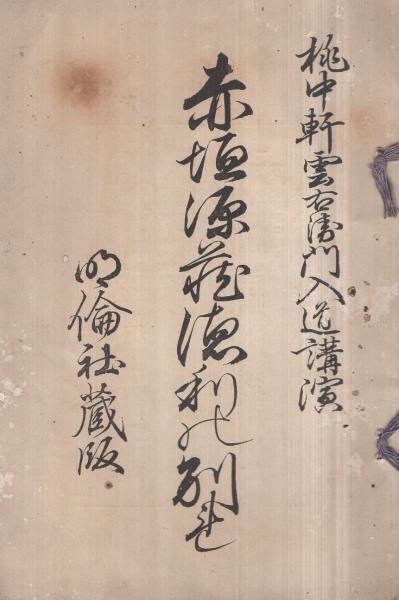 桃中軒雲右衛門入道講演
赤垣源蔵徳利の別れ
明倫社蔵版